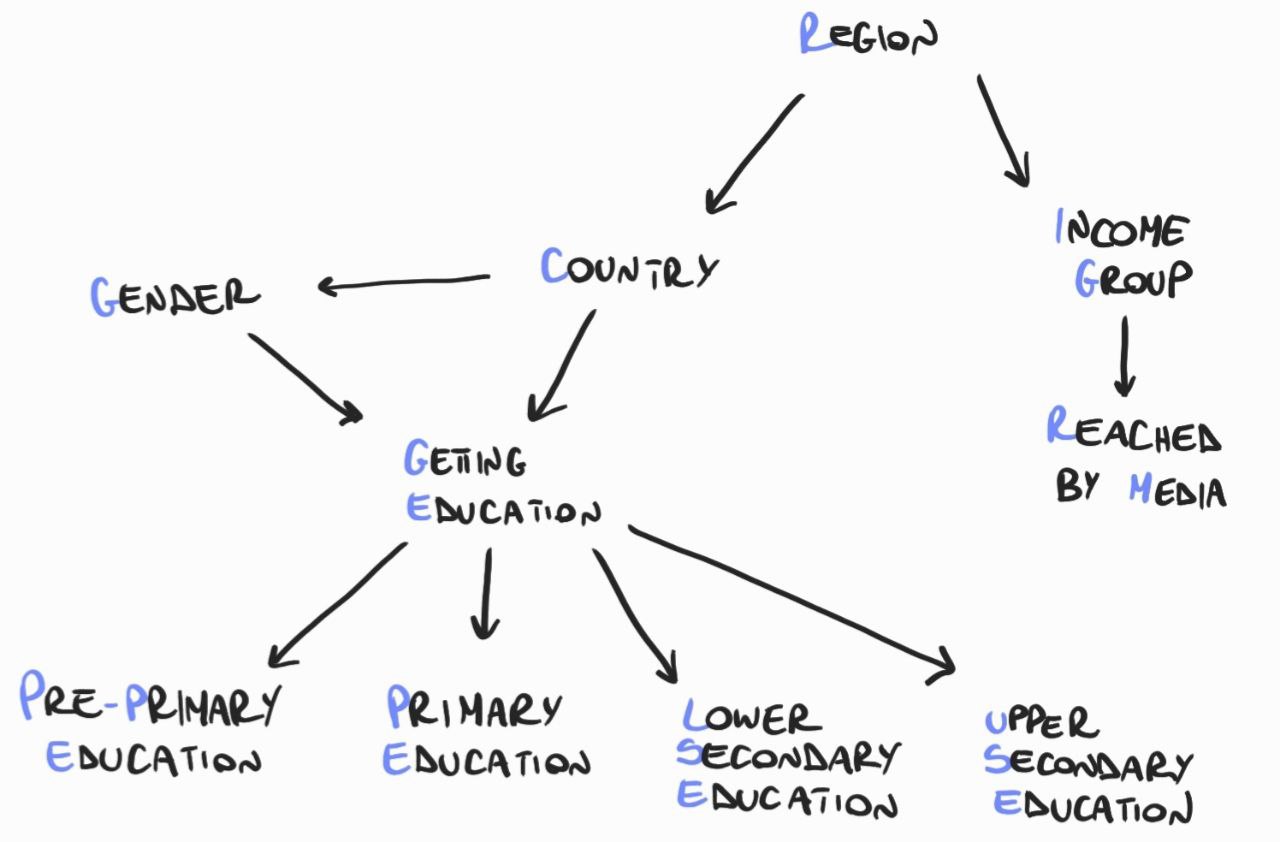 REGION
INCOME
GROUP
COUNTRY
GENDER
REACHED
BY MEDIA
GETING
EDUCATION
PRE-PRIMARY
EDUCATION
PRIMARY
EDUCATION
LOWER
SECONDARY
EDUCATION
UPPER
SECONDARY
EDUCATION